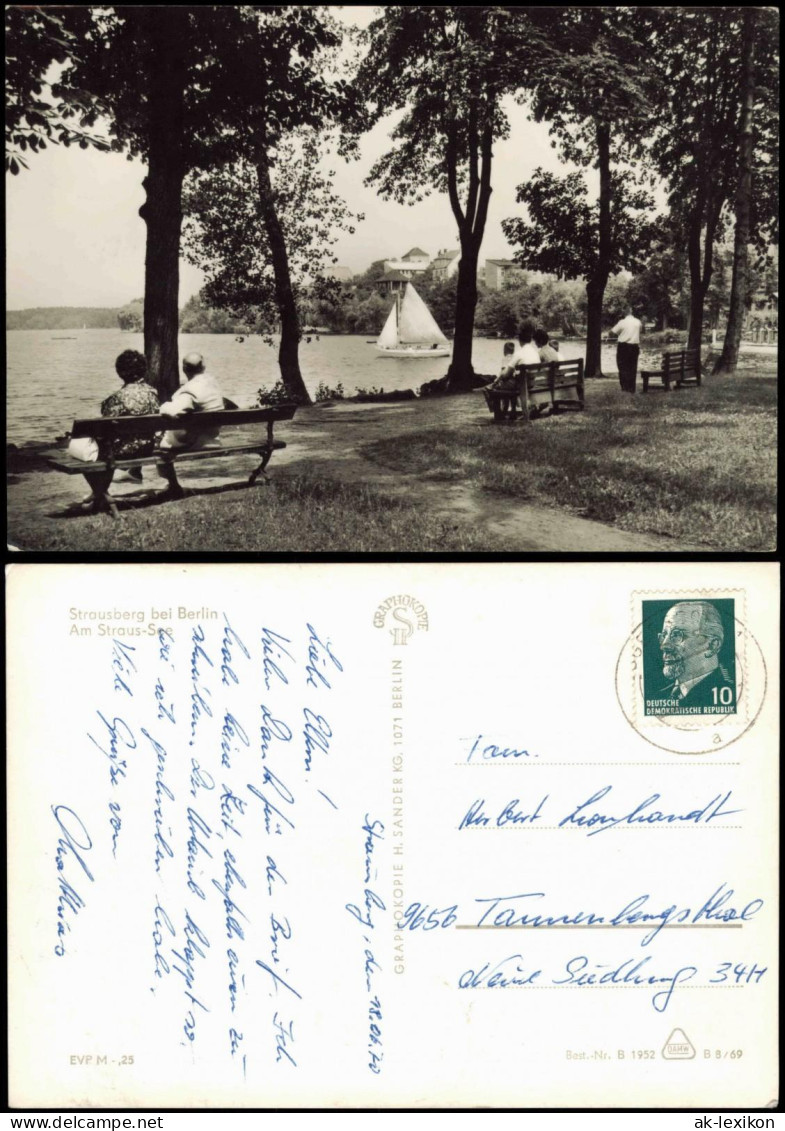 Strausberg bei Berlin
Am Straus-See
Liebe Eltern!
Vielen Dank für den Brief. Ich
habe keine Zeit, ebenfalls einen zu
schreiben. Der Urlaub klappt so,
wie ich geschrieben habe.
Viele Grüße von
Matthias
EVP M -,25
GRAPHOKOPIE
GRAPHOKOPIE H. SANDER KG, 1071 BERLIN
Strausberg, den 18.06.70
10
DEUTSCHE
DEMOKRATISCHE REPUBLIK
a
Fam.
Herbert Leonhardt
9656 Tannenbergsthal
Neue Siedlung 34H
Best.-Nr. B 1952
B 8/69
ak-lexikon